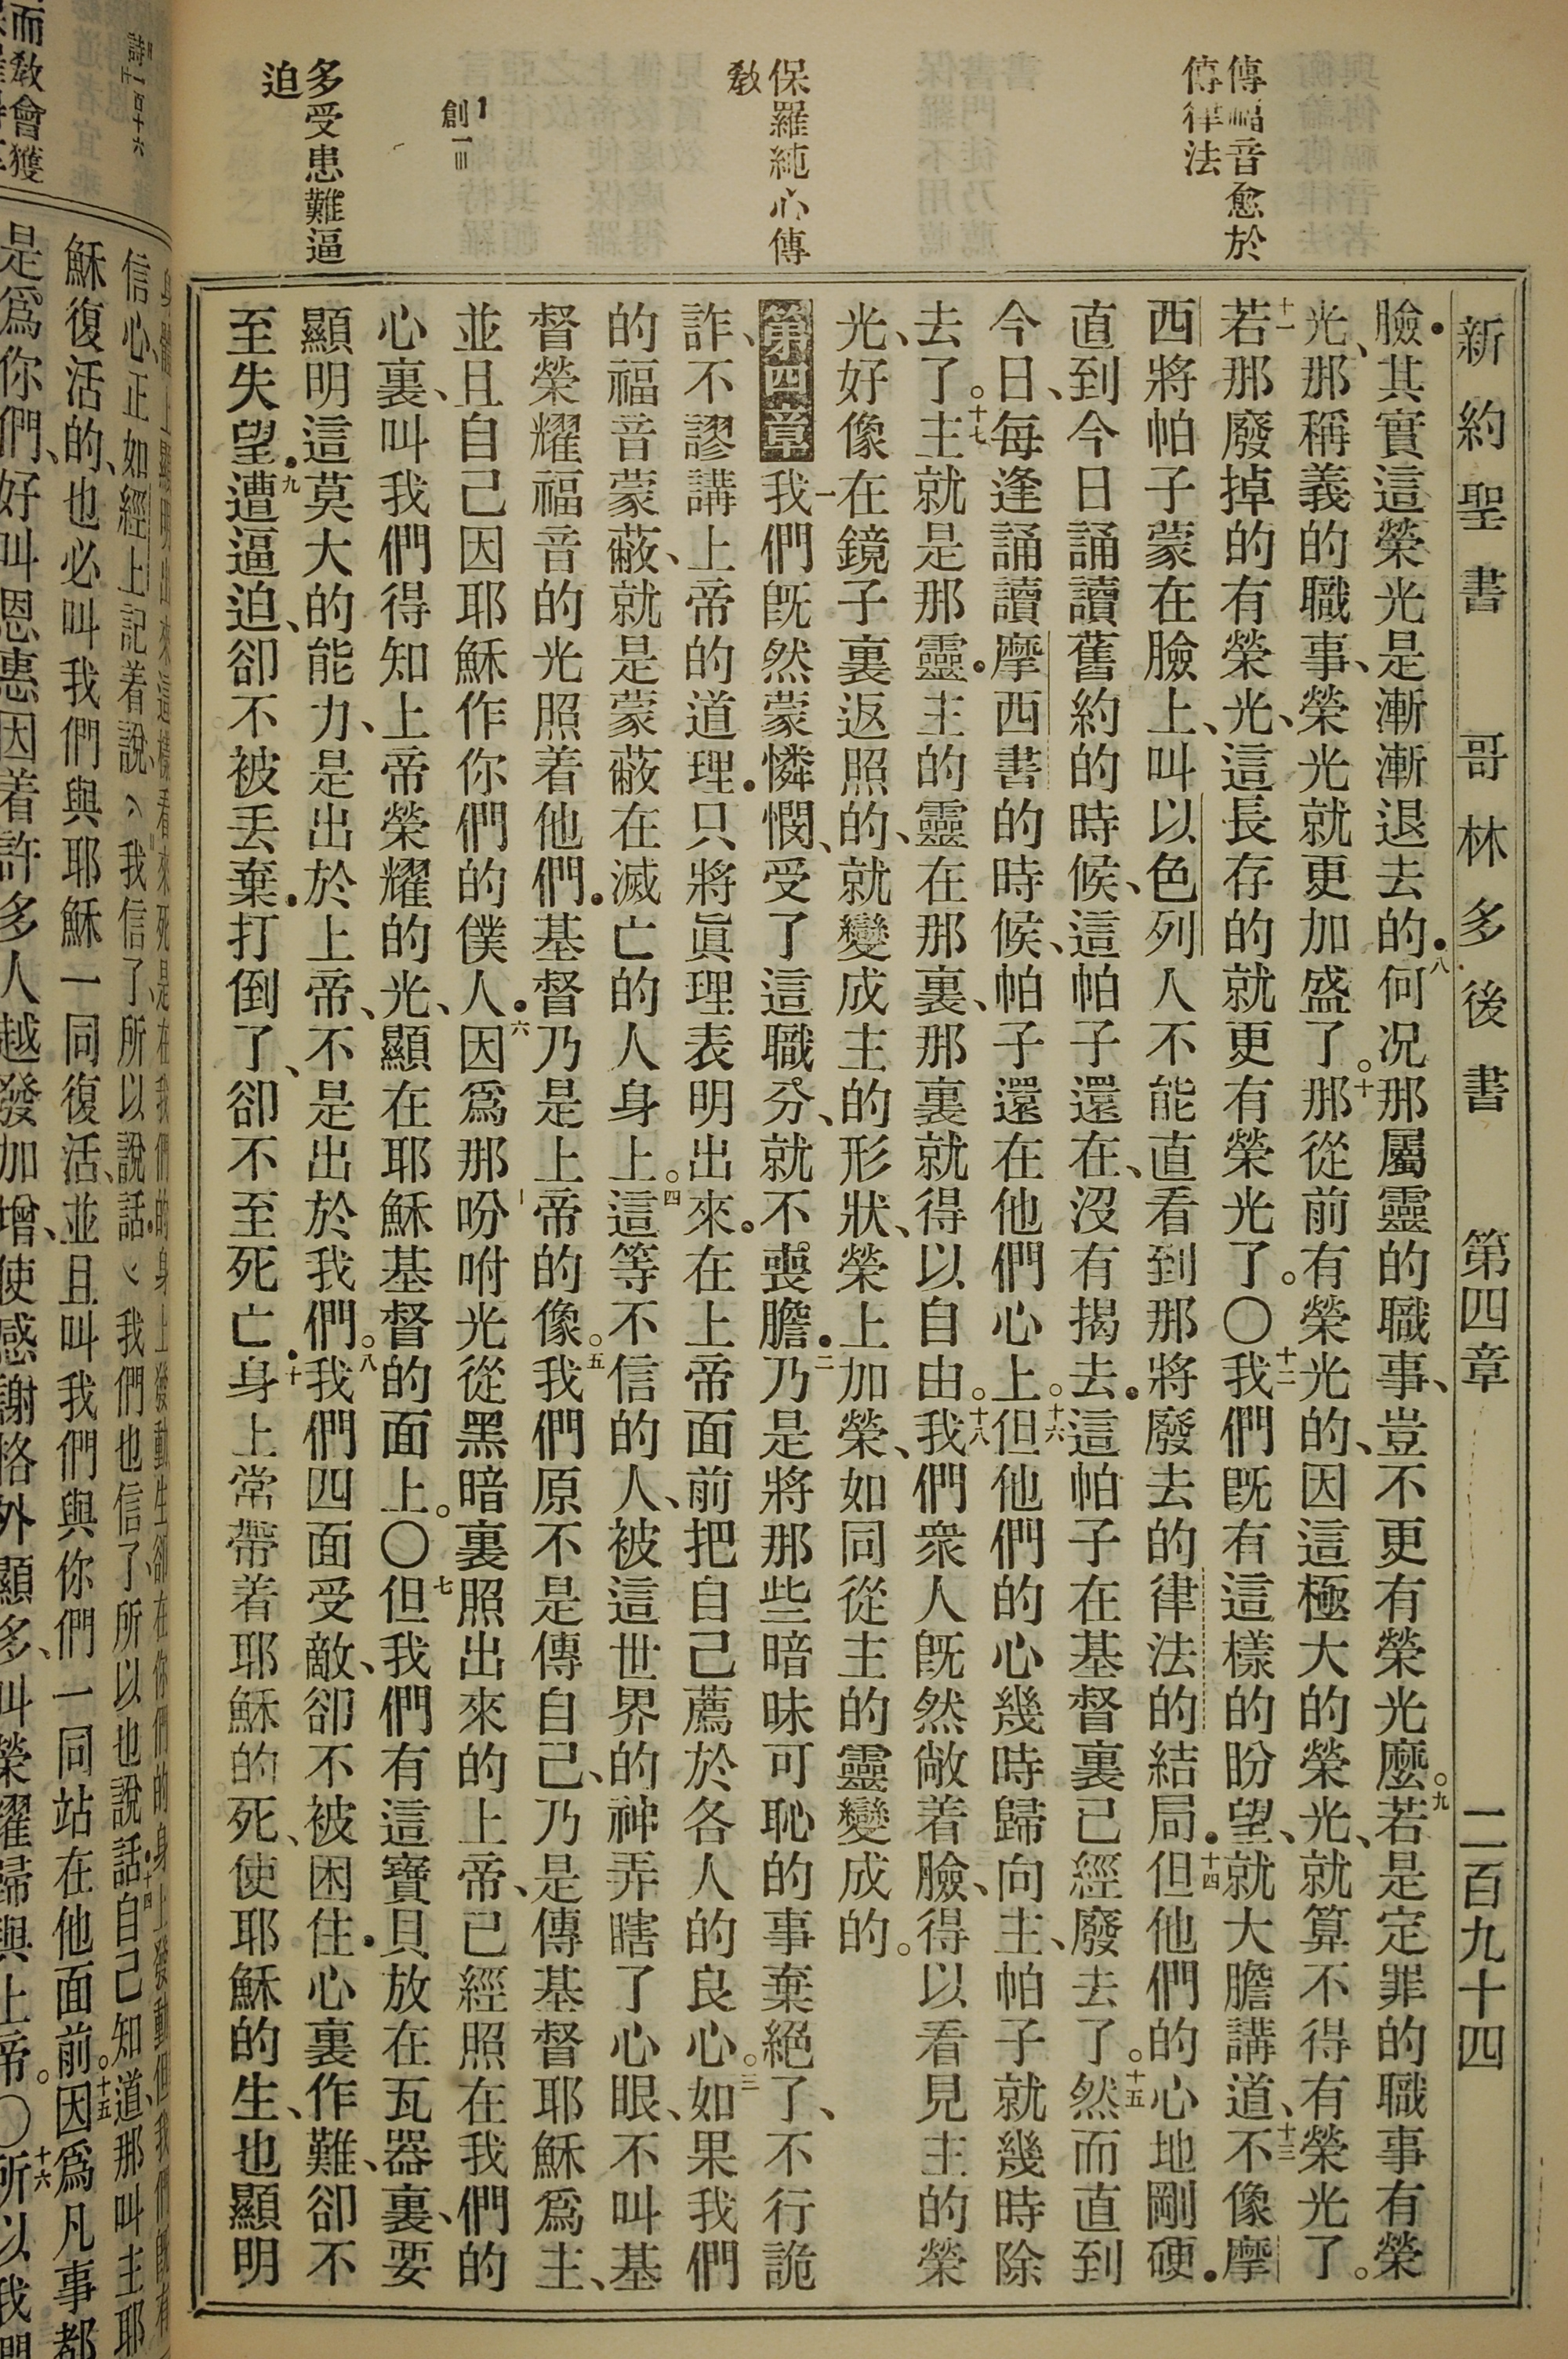 新約聖書　哥林多後書　第四章　二百九十四
傳福音愈於
傳律法
保羅純心傳
教
創一三
多受患難逼
迫
臉其實這榮光是漸漸退去的八何况那屬靈的職事、豈不更有榮光麼。九若是定罪的職事有榮
光、那稱義的職事、榮光就更加盛了。十那從前有榮光的、因這極大的榮光、就算不得有榮光了。
十一若那廢掉的有榮光、這長存的就更有榮光了。〇十二我們旣有這樣的盼望、就大膽講道、十三不像摩
西將帕子蒙在臉上、叫以色列人不能直看到那將廢去的律法的結局．十四但他們的心地剛硬．
直到今日誦讀舊約的時候、這帕子還在、沒有揭去．這帕子在基督裏已經廢去了。十五然而直到
今日、每逢誦讀摩西書的時候、帕子還在他們心上。十六但他們的心幾時歸向主、帕子就幾時除
去了。十七主就是那靈．主的靈在那裏、那裏就得以自由。十八我們衆人旣然敞着臉、得以看見主的榮
光、好像在鏡子裏返照的、就變成主的形狀、榮上加榮、如同從主的靈變成的。
第四章一我們旣然蒙憐憫、受了這職分、就不喪膽．二乃是將那些暗昧可恥的事棄絕了、不行詭
詐、不謬講上帝的道理．只將眞理表明出來．在上帝面前把自己薦於各人的良心。三如果我們
的福音蒙蔽、就是蒙蔽在滅亡的人身上。四這等不信的人、被這世界的神弄瞎了心眼、不叫基
督榮耀福音的光照着他們．基督乃是上帝的像。五我們原不是傳自己、乃是傳基督耶穌爲主、
並且自己因耶穌作你們的僕人．六因爲那吩咐光從黑暗裏照出來的上帝、已經照在我們的
心裏、叫我們得知上帝榮耀的光、顯在耶穌基督的面上。〇七但我們有這寶貝放在瓦器裏、要
顯明這莫大的能力、是出於上帝、不是出於我們。八我們四面受敵、卻不被困住．心裏作難、卻不
至失望．九遭逼迫、卻不被丟棄．打倒了、卻不至死亡．十身上常帶着耶穌的死、使耶穌的生、也顯明
詩一百十六
十
而教會獲
身體上顯明出來這樣看來死是在我們的身上發動生卻在你們的身上發動但我們旣有
信心、正如經上記着說、我信了、所以說話．我們也信了、所以也說話．十四自己知道、那叫主耶
穌復活的、也必叫我們與耶穌一同復活、並且叫我們與你們一同站在他面前。十五因爲凡事都
是爲你們、好叫恩惠因着許多人越發加增、使感謝格外顯多、叫榮耀歸與上帝。〇十六所以我們